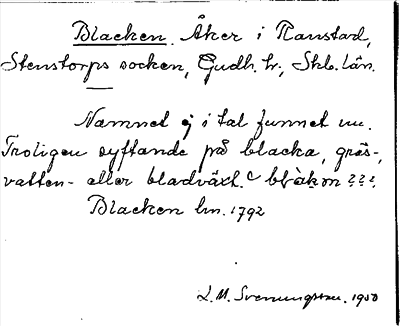 Blacken. Åker i Ranstad,
Stenstorps socken, Gudh. hr, Skb. län.
Namnet ej i tal funnet nu.
Troligen syftande på blacka, gräs-,
vatten- eller bladväxt. ???
Blacken lm. 1792
L. M. Svenungsson. 1950